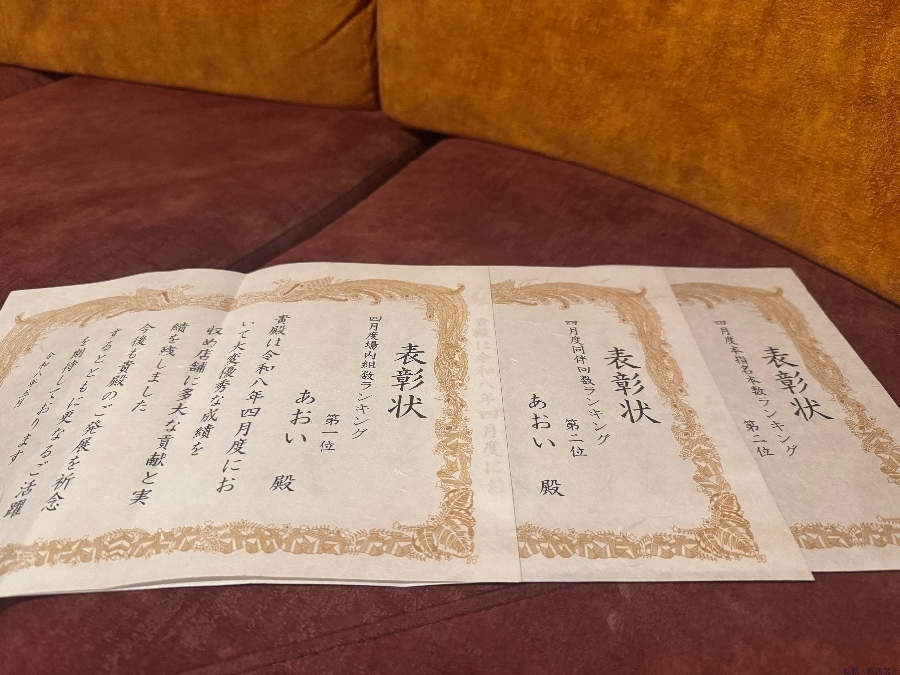 表彰状
四月度場内組数ランキング
第一位
あおい 殿
貴殿は令和八年四月度にお
いて大変優秀な成績を
収め店舗に多大な貢献と実
績を残しました
今後も貴殿のご発展を祈念
するとともに更なるご活躍
を期待しております
令和八年五月
表彰状
四月度同伴回数ランキング
第二位
あおい 殿
表彰状
四月度本指名本数ランキング
第二位